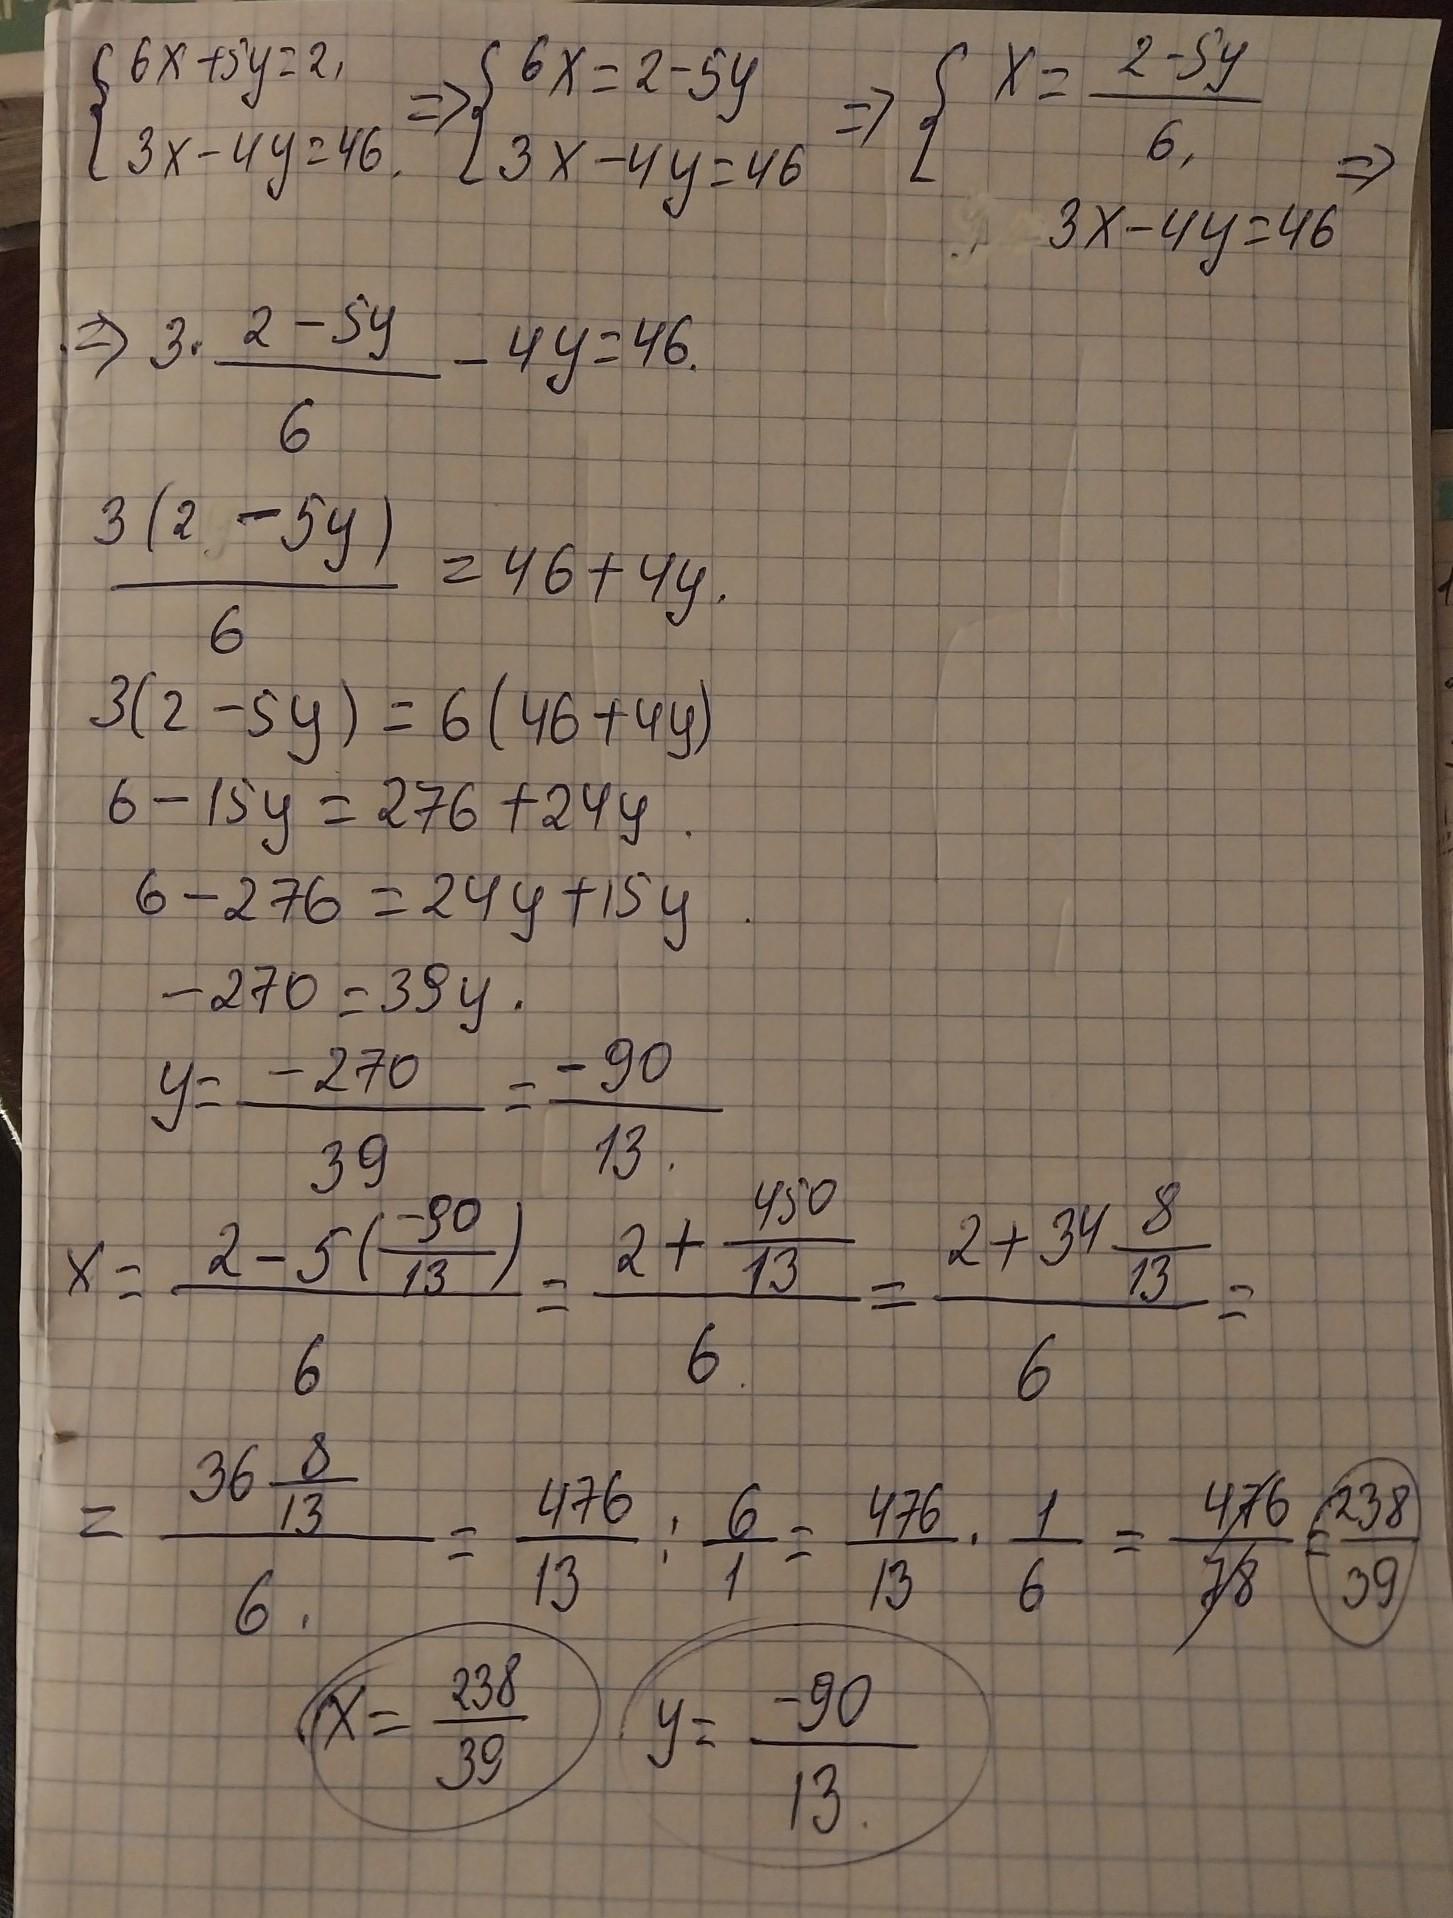 {6x+5y=2, 3x-4y=46. => {6x=2-5y 3x-4y=46 => {x=(2-5y)/6, 3x-4y=46 =>
=> 3·(2-5y)/6 - 4y=46.
3(2-5y)/6 = 46+4y.
3(2-5y)=6(46+4y)
6-15y=276+24y.
6-276=24y+15y.
-270=39y.
y=-270/39=-90/13.
x=(2-5(-90/13))/6=(2+450/13)/6.=(2+34 8/13)/6=
=(36 8/13)/6.=476/13:6/1=476/13·1/6=476/78=238/39
x=238/39 y=-90/13.